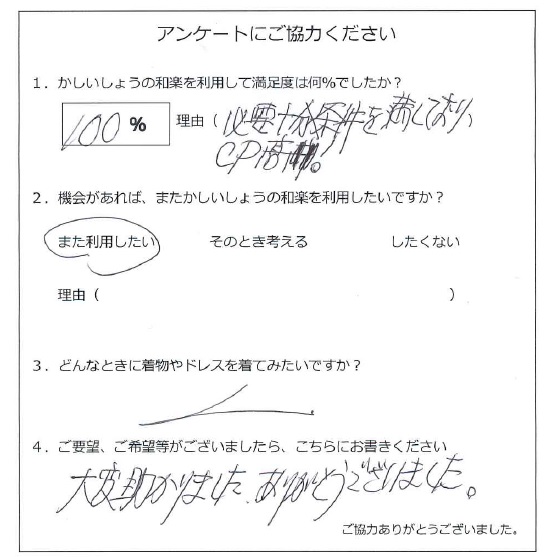 アンケートにご協力ください
1．かしいしょうの和楽を利用して満足度は何%でしたか？
100 % 理由（必要十分条件を満しており、
CP
2．機会があれば、またかしいしょうの和楽を利用したいですか？
また利用したい そのとき考える したくない
理由（ ）
3．どんなときに着物やドレスを着てみたいですか？
4．ご要望、ご希望等がございましたら、こちらにお書きください
大変助かりました。ありがとうございました。
ご協力ありがとうございました。